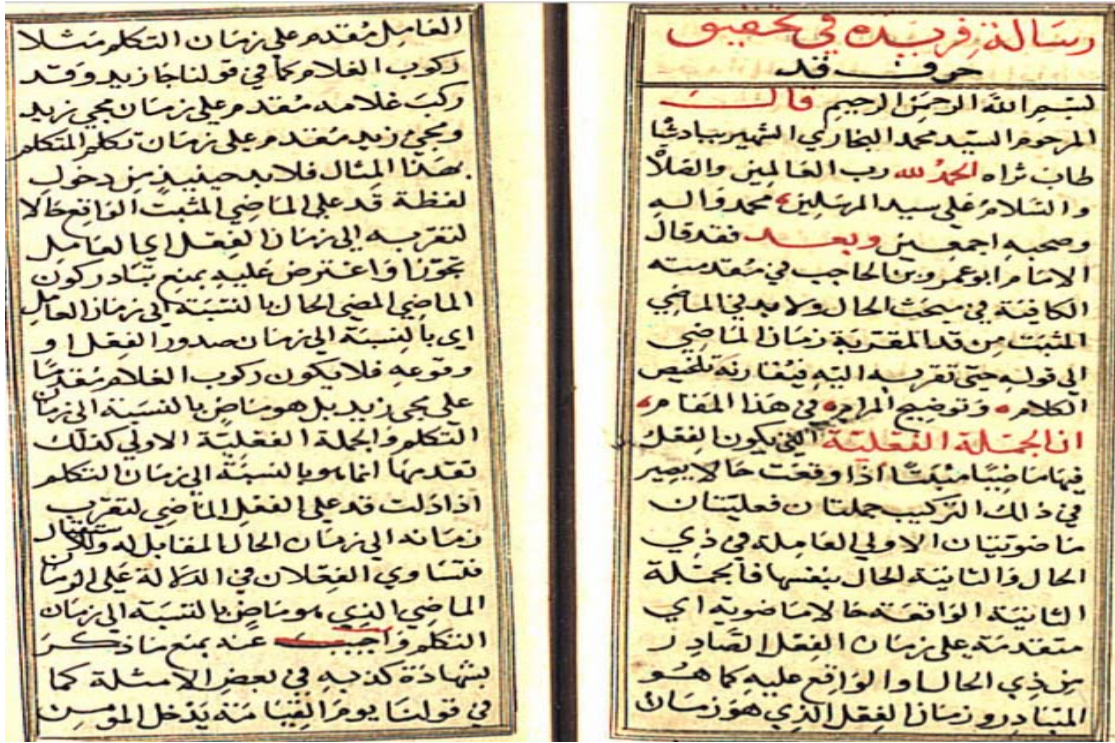 رسالة فريده في تحقيق
حرف قد
بسم الله الرحمن الرحيم قال
المرحوم السيد محمد البخاري الشهير ببادشا
طاب ثراه الحمد لله رب العالمين والصلاة
والسلام على سيد المرسلين محمد واله
وصحبه اجمعين وبعد فقد قال
الامام ابو عمرو بن الحاجب في مقدمته
الكافية في بحث الحال ولا بد في الماضي
المثبت من قد المقربة زمان الماضي
الى قوله حتى تقربه اليه فيقارنه تلخيص
الكلام وتوضيح المرام في هذا المقام
ان الجملة الفعلية التي يكون الفعل
فيها ماضيا مثبتا اذا وقعت حالا يصير
في ذلك التركيب جملتان فعليتان
ماضويتان الاولى العاملة في ذي
الحال والثانية الحال بنفسها فالجملة
الثانية الواقعة حالا ماضوية اي
متقدمة على زمان الفعل الصادر
من ذي الحال او الواقع عليه كما هو
المتبادر وزمان الفعل الذي هو زمان
العامل مقدم على زمان التكلم مثلا
ركوب الغلام كما في قولنا جا زيد وقد
ركب غلامه مقدم على زمان مجي زيد
ومجي زيد مقدم على زمان تكلم المتكلم
بهذا المثال فلا بد حينيذ من دخول
لفظة قد على الماضي المثبت الواقع حالا
لتقربه الى زمان الفعل اي العامل
تجوزا واعترض عليه بمنع تبادر كون
الماضي المضي الحال بالنسبة الى زمان العامل
اي بالنسبة الى زمان صدور الفعل او
وقوعه فلا يكون ركوب الغلام مقدما
على مجى زيد بل هو ماض بالنسبة الى زمان
التكلم والجملة الفعلية الاولى كذلك
تقدمها انما هو بالنسبة الى زمان التكلم
اذا دلت قد على الفعل الماضي لتقرب
زمانه الى زمان الحال المقابل له وللاستقبال
فتساوي الفعلان في الدلالة على الزمان
الماضي الذي هو ماض بالنسبة الى زمان
التكلم واجيب عنه بمنع ما ذكر
بشهادة كذبه في بعض الامثلة كما
في قولنا يوم القيامة يدخل المومن